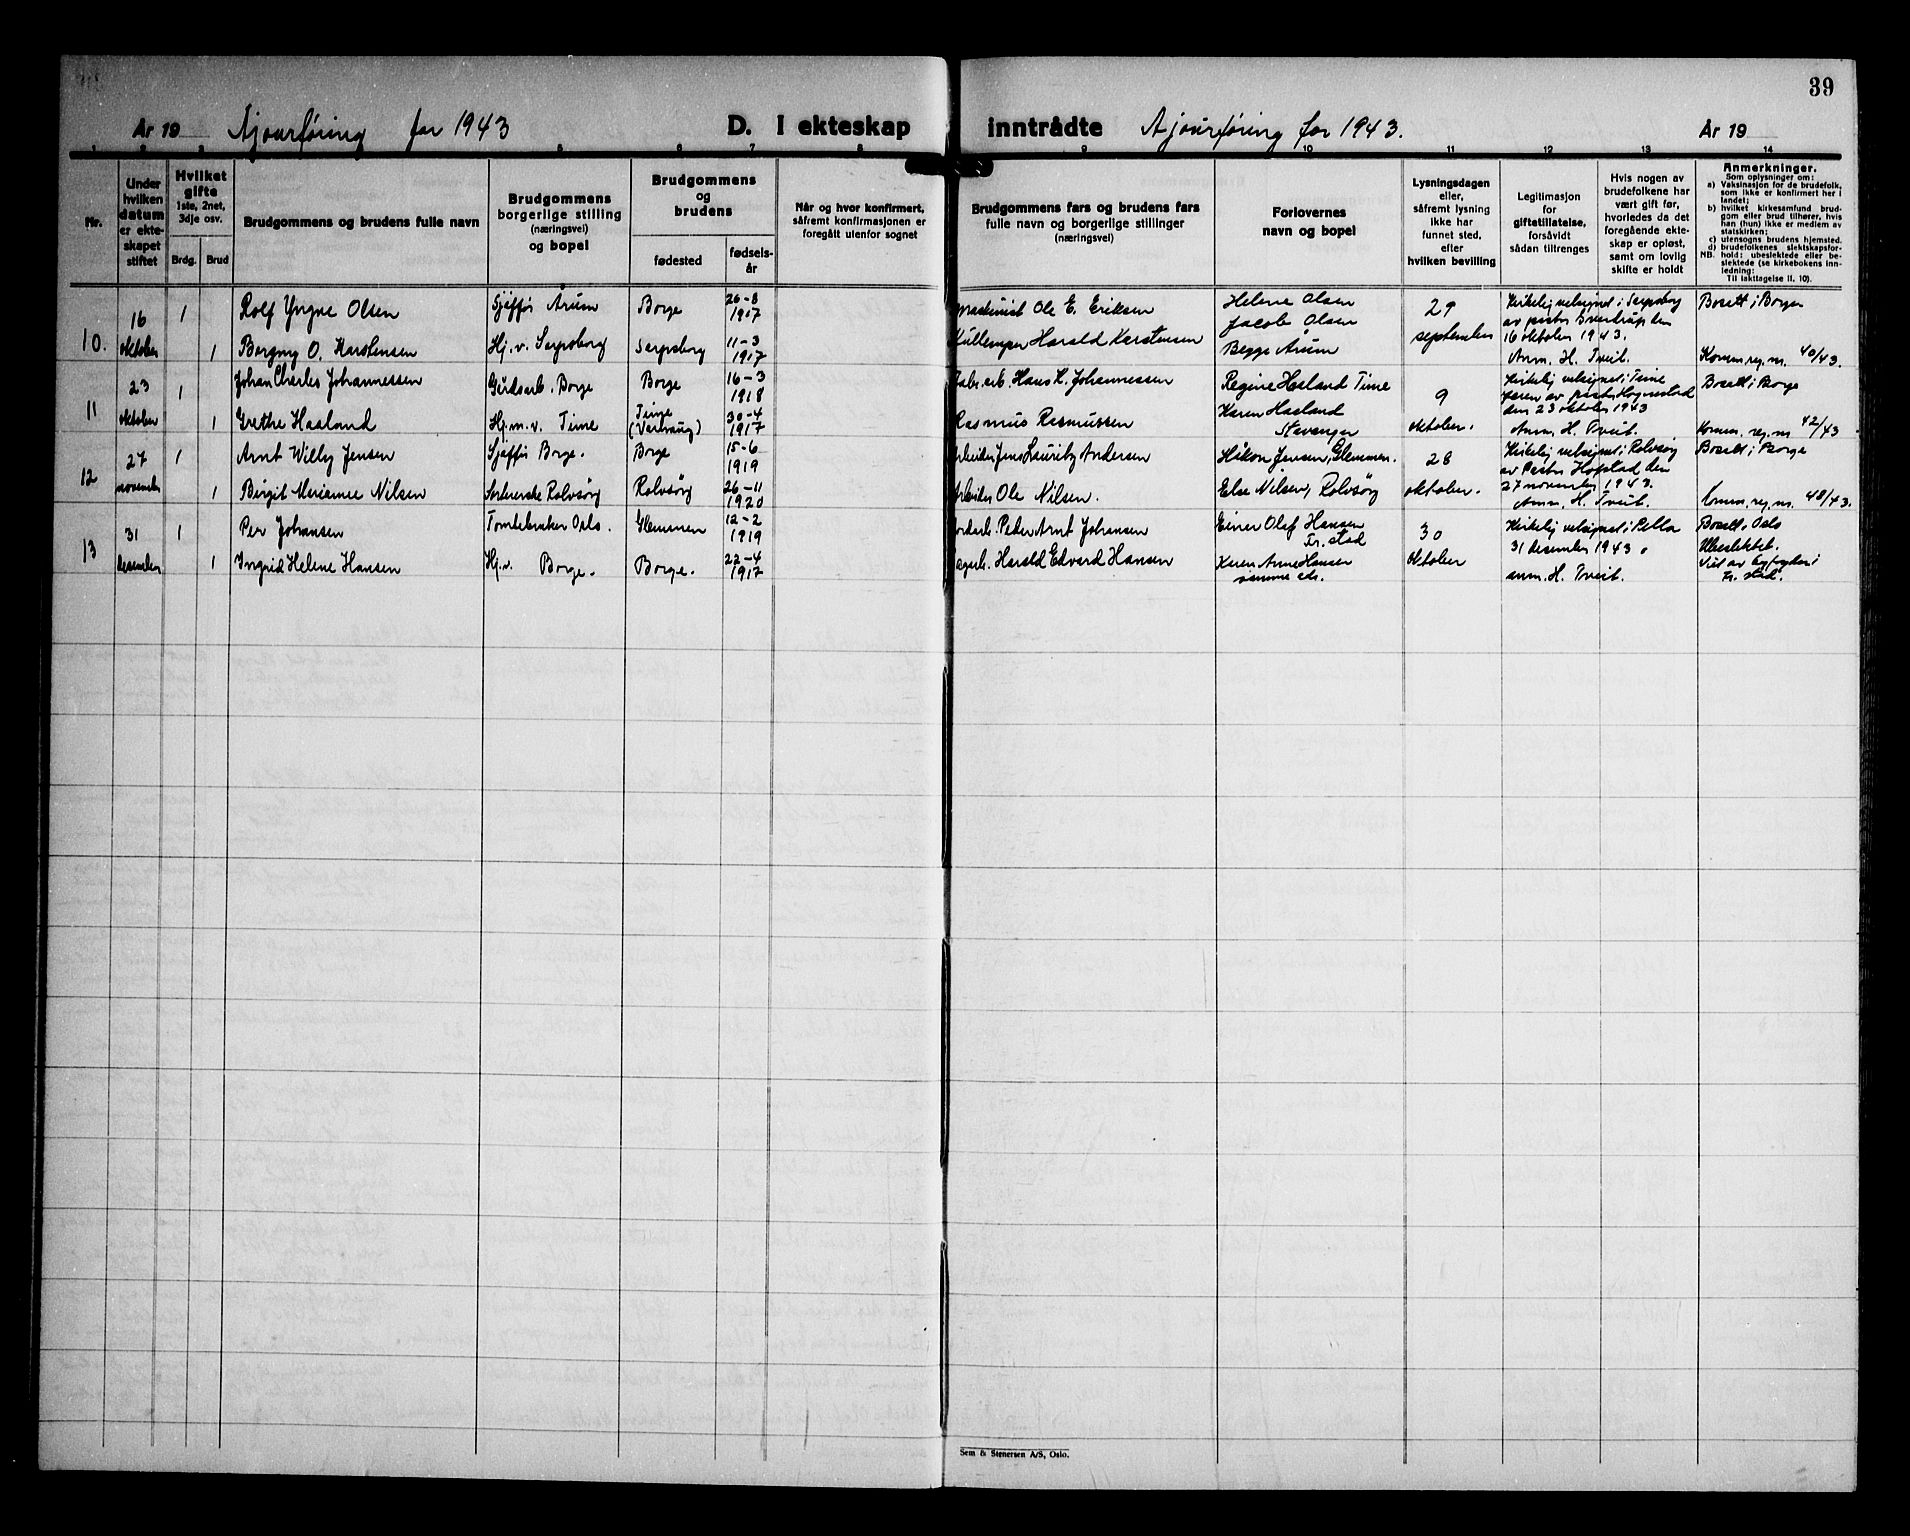 39
År 19 Ajourføring for 1943 D. I ekteskap inntrådte Ajourføring for 1943. År 19
1 2 3 4 5 6 7 8 9 10 11 12 13 14
Nr.
Under hvilken datum er ekteskapet stiftet
Hvilket gifte 1ste, 2net, 3dje osv.
Brdg. Brud
Brudgommens og brudens fulle navn
Brudgommens borgerlige stilling (næringsvei) og bopel
Brudgommens og brudens
fødested
fødselsår
Når og hvor konfirmert, såfremt konfirmasjonen er foregått utenfor sognet
Brudgommens fars og brudens fars fulle navn og borgerlige stillinger (næringsvei)
Forlovernes navn og bopel
Lysningsdagen eller, såfremt lysning ikke har funnet sted, efter hvilken bevilling
Legitimasjon for giftetillatelse, forsåvidt sådan tiltrenges
Hvis nogen av brudefolkene har vært gift før, hvorledes da det foregående ekteskap er opløst, samt om lovlig skifte er holdt
Anmerkninger.
Som oplysninger om:
a) Vaksinasjon for de brudefolk, som ikke er konfirmert her i landet;
b) hvilket kirkesamfund brudgom eller brud tilhører, hvis han (hun) ikke er medlem av statskirken;
c) utensogns brudens hjemsted.
d) brudefolkenes slektskapsforhold: ubeslektede eller beslektede (se kirkebokens innledning:
NB.
Til iakttagelse II. 10).
10. 16 oktober 1 Rolf Yngve Olsen Sjåffør Årum Borge 26-8 1917 Maskinist Ole E. Eriksen Helene Olsen Jacob Olsen 29 Kirkelig velsignet i Sarpsborg av pastor Sverdrup den Bosatt i Borge
1 Borgny O. Karstensen Hj.v. Sarpsborg Sarpsborg 11-3 1917 Harald Karstensen Begge Årum september 16 oktober 1943. Anm. H. Tveit. Komm. reg. nr. 40/43.
11 23 oktober 1 Johan Charles Johannessen Gårdsarb. Borge Borge 16-3 1918 Fabr. arb. Hans K. Johannessen Regine Hasland Time 9 Kirkelig velsignet i Time Jæren av pastor Hognestad Bosatt i Borge
1 Grethe Haaland Hj.m.v. Time Time 30-4 1917 Rasmus Rasmussen Karen Hasland Stavanger oktober. den 23 oktober 1943 Anm. H. Tveit. Komm. reg. nr. 42/43
12 27 november 1 Arnt Willy Jensen Sjåffør Borge. Borge 15-6 1919 Arbeider Jens Lauritz Andersen Håkon Jensen, Glemmen. 28 Kirkelig velsignet i Rolvsøy av Pastor Hofstad den Bosatt i Borge
1 Birgit Marianne Nilsen Rolvsøy Rolvsøy 26-11 1920 Arbeider Ole Nilsen. Else Nilsen, Rolvsøy oktober. 27 november 1943. Anm. H. Tveit. Komm. reg. nr. 48/43.
13 31 desember 1 Per Johansen Oslo. Glemmen 12-2 1919 Peder Arnt Johansen Einar Olaf Hansen Fr. stad 30 Kirkelig velsignet i Pella Bosatt i Oslo Ubeslektet.
1 Ingrid Helene Hansen Hj.v. Borge. Borge. 22-4 1917 Harald Edvard Hansen Karen Anne Hansen samme sts. oktober 31 desember 1943. anm. H. Tveit. Viet av byfogden i Fr. stad.
Sem & Stenersen A/S, Oslo.